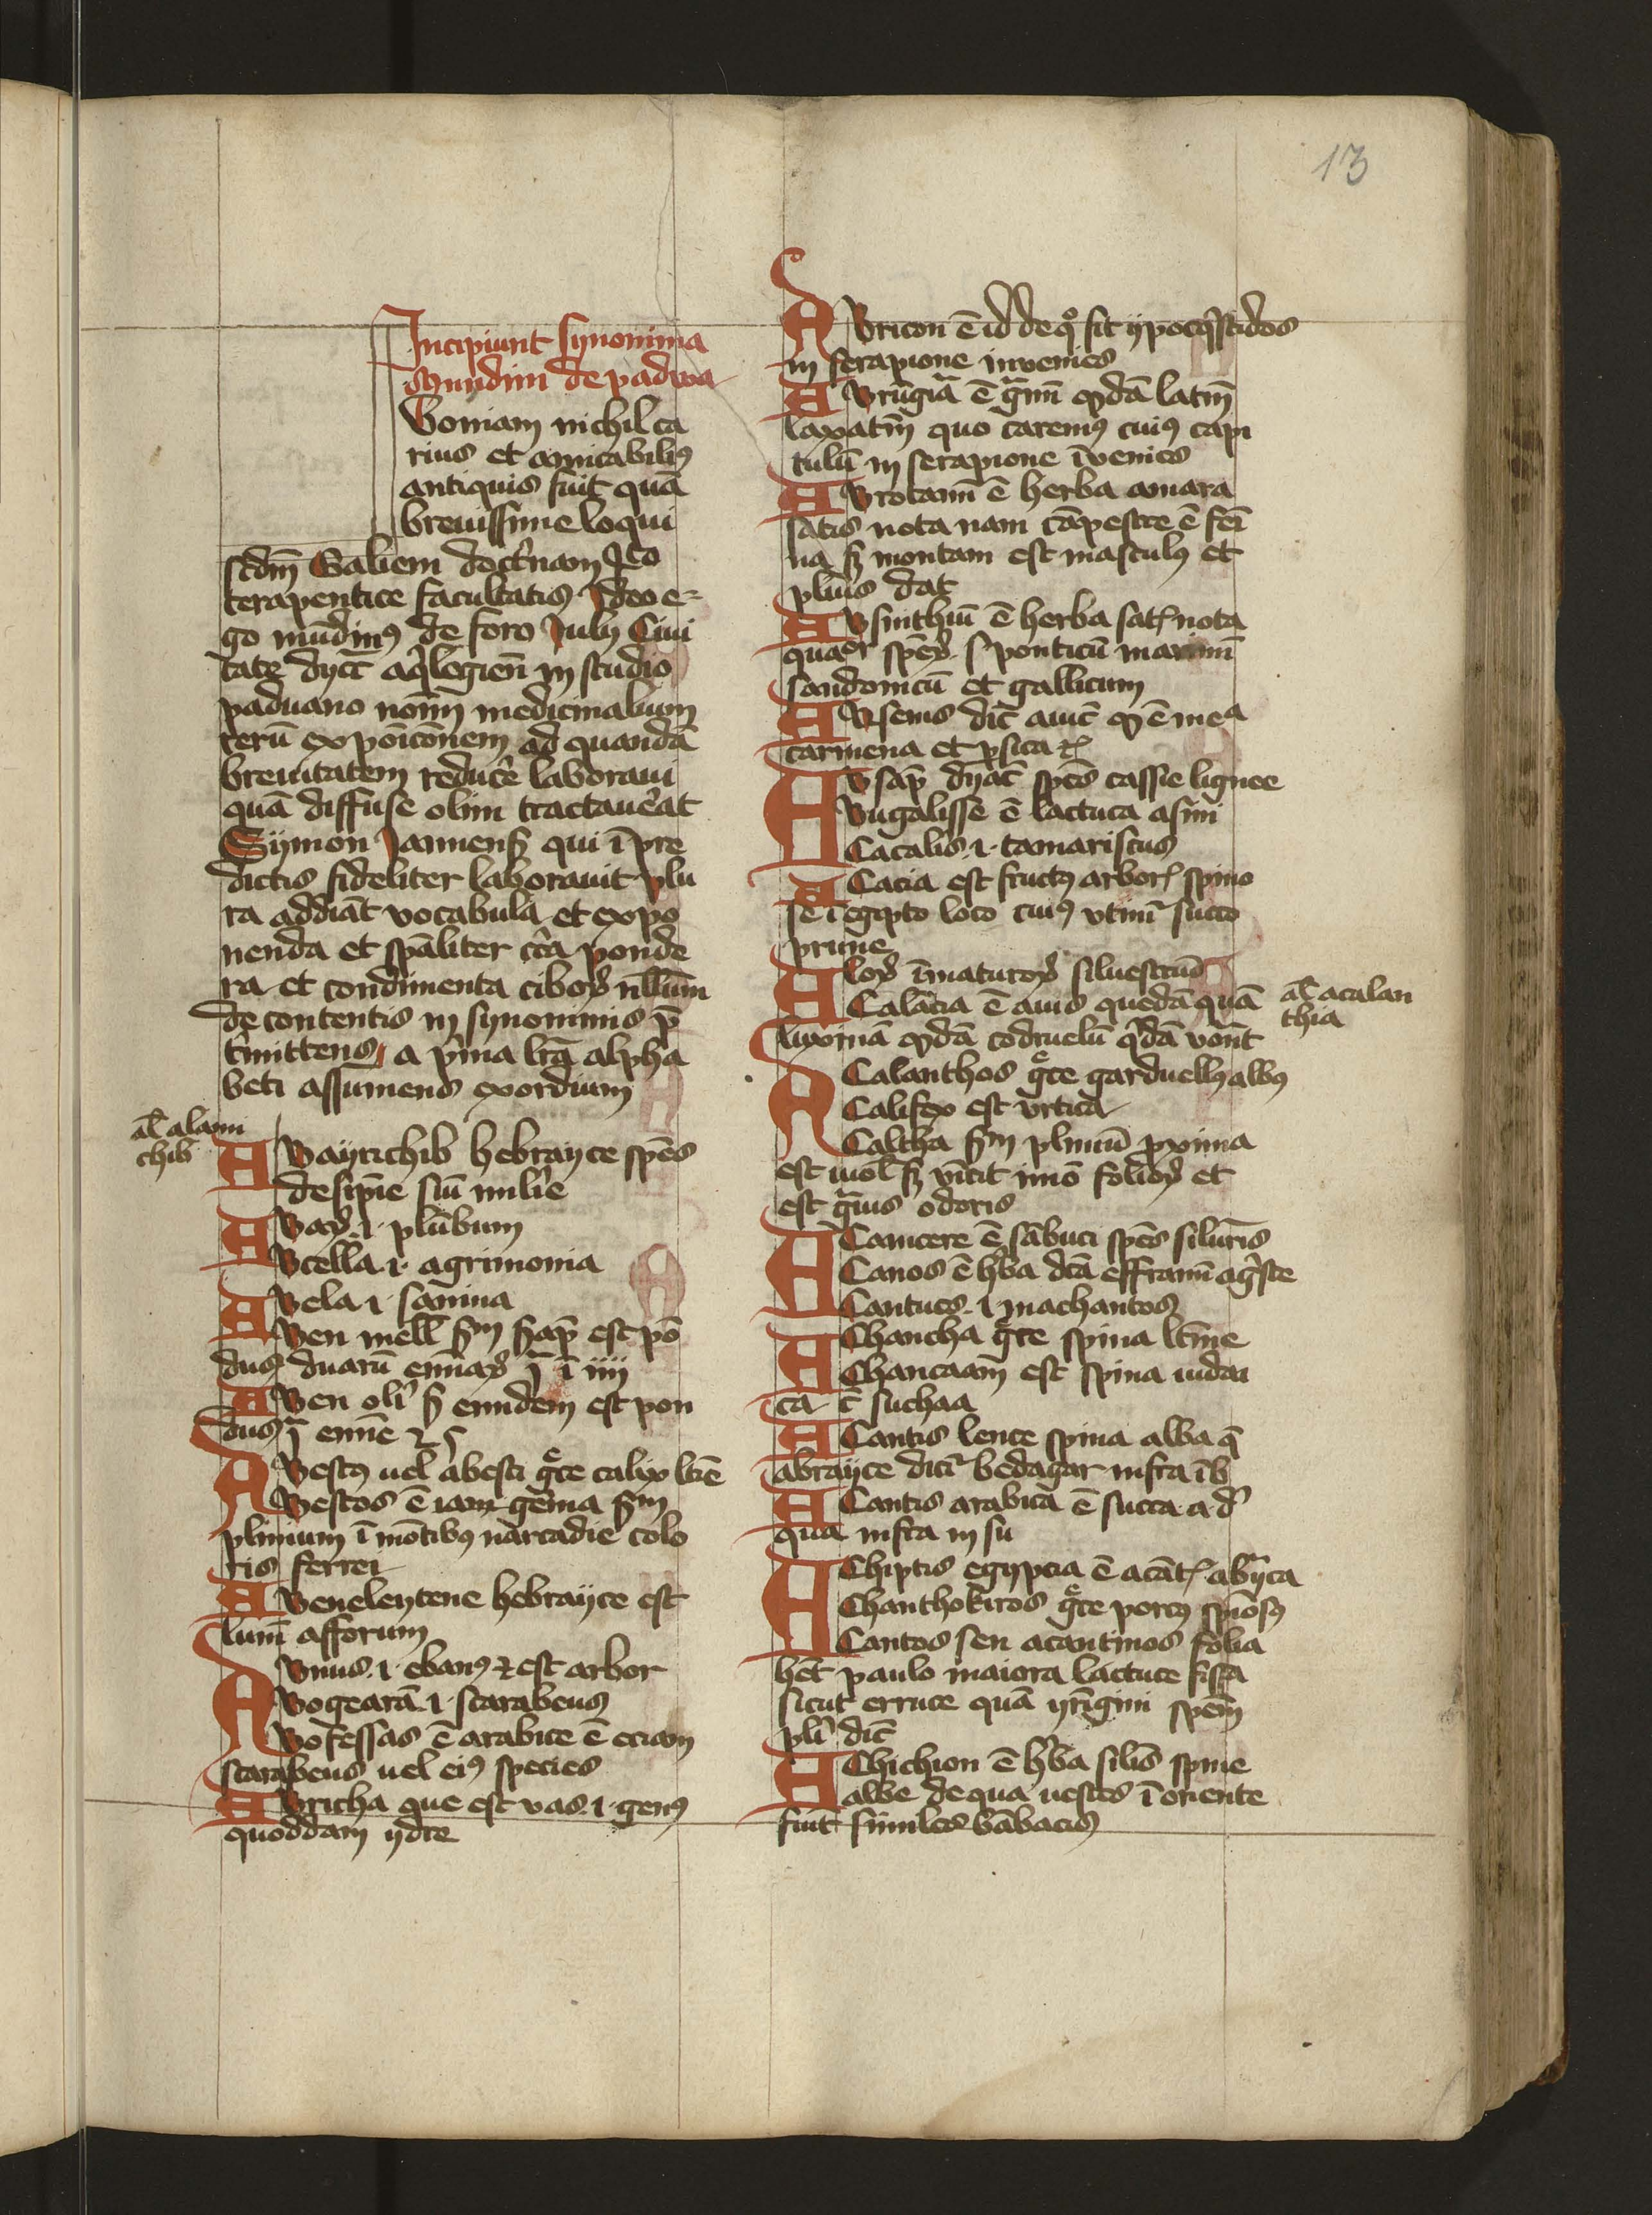 13
Incipiunt synonima
Mundini de padwa
Uoniam nichil ca
rius et amicabiliꝰ
antiquis fuit quā
breuissime loqui
scdm̄ Galieni doct'nam Jco
terapentice facultatis Jdeo e-
go mūdinꝰ de foro Julij Ciui
tate dyct aqͥlegien̄ in studio
paduano noīm medicinalium
rerū expoicōnem ad quandā
breuitatem reduc'e laboraui
quā diffuse olim tractau'at
Sijmon Januens̄ qui ī pre
dictis fideliter laborauit plu
ra addiāt vocabula et expo
nenda et spāliter cͥca ponde
ra et condimenta ciboꝝ nll'um
de contentis in synonimis p̄
t'mittens a pͥma lr̄a alpha
beti assumens exordium
al' alami
chib
A Bayrichib hebrayce sp̄es
desip̄ie siū mlie
A Baꝝ .i. plūbum
A Bcella .i. agrimonia
A Bela .i. sāmina
A Ben mell' ẜm ẜap̄ est pō
dus duarū emīaꝝ ꝭ ī iiii
A Ben oli' ẜ eundem est pon
dus ꝭ emīe 2 ẜ
A Bestꝰ uel abesti gͤce calix lt̄e
Bestos ē iam gēma ẜm
plinium ī mōtibꝰ narcadie colo
ris ferrei
A Beneleytene hebrayce est
lum̄ afforum
A Bnus .i. ebanꝰ ⁊ est arbor
Bogearā .i. scarabeus
Bofessas ē arabice ē eciam
scarabeus uel eiꝰ species
A Bricha que est vas .i. genꝰ
quoddam ydre
A Bricon ē id de qͦ fit ypoqͥstidos
in serapione inuenies
A Brūgiā ē gͣnū qͦdā latm̄
laxatm̄ quo caremꝰ cuiꝰ capi
tulū in serapione īuenies
A Brotanū ē herba amara
satis nota nam cāpestre ē femi
na ẜ montam est masculꝰ et
pliuis dat
A Bsinthiū ē herba satꝭ nota
quaꝰr sp̄eꝝ .s. ponticū marinū
sandonicū et gallicum
A Bsems dic̄ auic̄ qͦ ē meᵃ
carmena et ꝑsica ⁊c̄
A Bsap̄ dyat sp̄es cassie lignee
Bugalisse ē lactuca asini
Cacalis .i. tamariscus
A Cacia est fructꝰ arborꝭ spino
se ī egipto loco cuiꝰ vtimꝛ succo
prune
A loꝝ īmaturoꝝ siluestriū
Calācia ē auis quedā quā
al' acalan
thia
luxinā qͦdā codruelū qͥdā voñt
A Calanthos gͤce garduellꝰ albꝰ
Califex est vrtica
Caltha ẜm pliniū ꝓxima
est uiol' ẜ vīcit imō folioꝝ et
est gͣuis odoris
A Camcere ē sābuci sp̄es siluꝛīs
Canos ē hͥba dc̄ā effranū agͥste
Cantues .i. machantos
A Chancha gͤce spina lt̄īne
Chancaam̄ est spina iudai
ca c̄ suchaa
A Cantis lence spina alba qͥ
abrayce dicit' bedagar infra īb
A Cantis arabica ē succa a d'
qua infra in su
A Chiptis egypcia ē acātꝭ abyͣca
Chanthokiros gͤce porcꝰ spīosꝰ
Cantos seu acantinos folia
hēt paulo maiora lactuce fissa
sicut erruce quā yrīgini sp̄em
pli' dic̄
A Chichion ē hͥba siliſ spine
albe de qua uestes ī oriente
fiūt similes bābacis